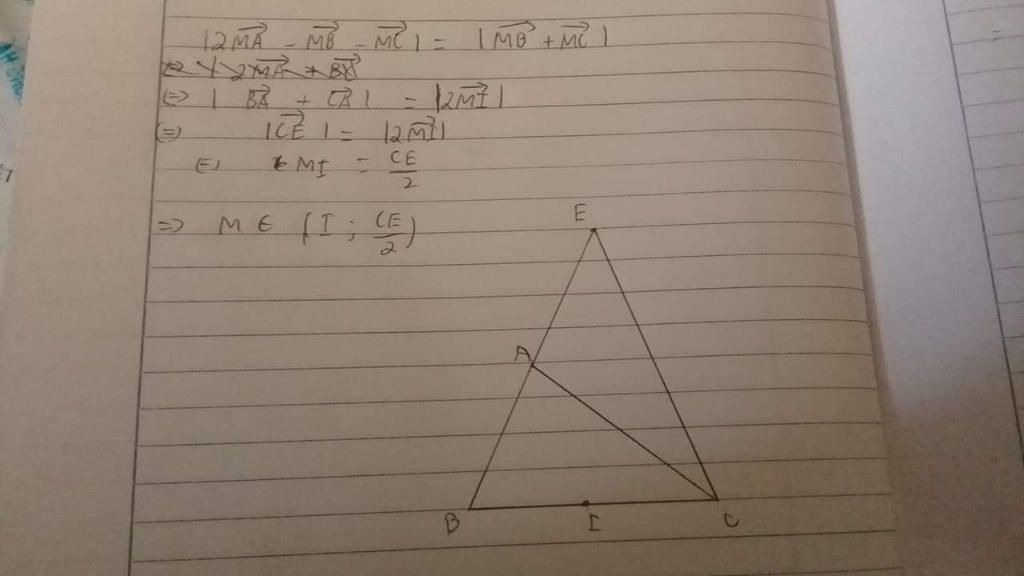 |2MA⃗ - MB⃗ - MC⃗| = |MB⃗ + MC⃗|
⇔ | 2MA⃗ + 
⇔ | BA⃗ + CA⃗ | = |2MI⃗|
⇔ |CE⃗| = |2MI⃗|
⇔ MI = CE/2
⇒ M ∈ (I; CE/2)
E
A
B I C